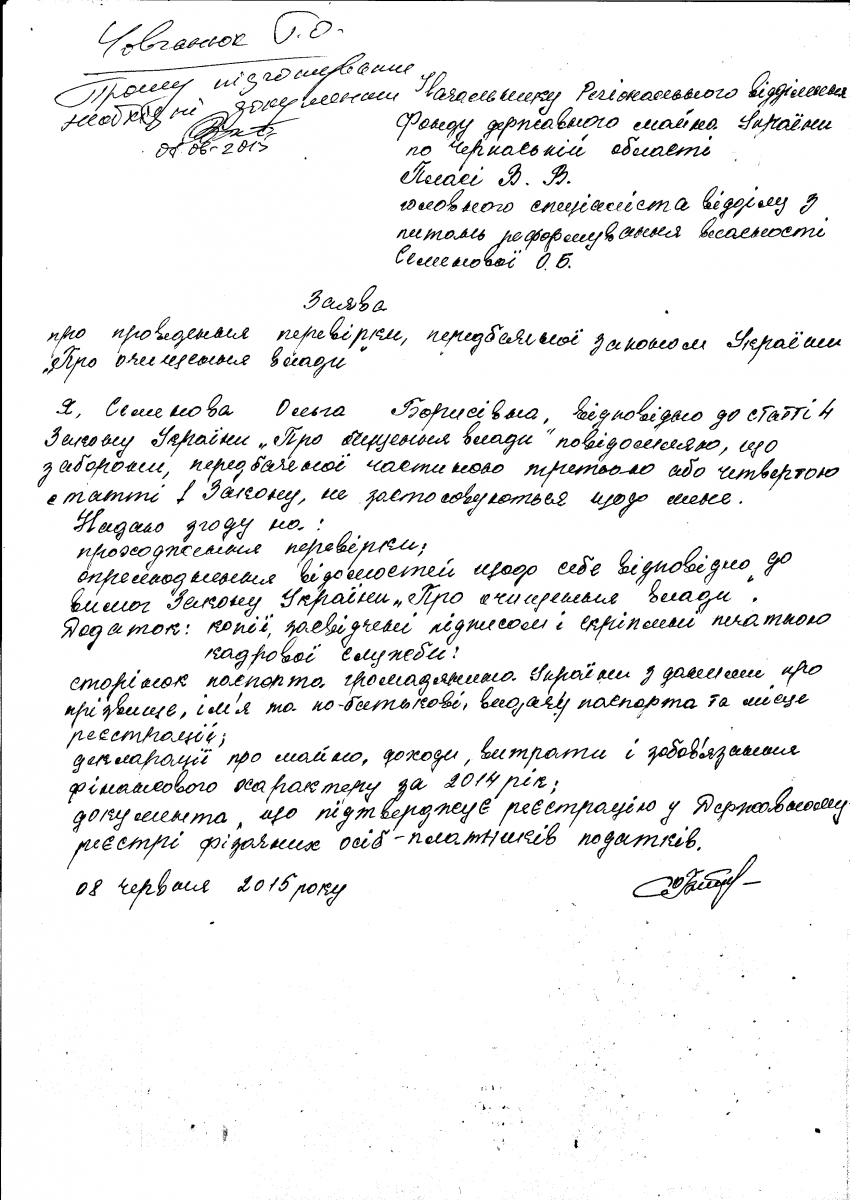 Човганюк Г.О.
Прошу підготувати
необхідні документи
08 06-2015
Начальнику Регіонального відділення
Фонду державного майна України
по Черкаській області
Пласі В. В.
головного спеціаліста відділу з
питань реформування власності
Семенової О.Б.
Заява
про проведення перевірки, передбаченої законом України
„Про очищення влади"
Я, Семенова Ольга Борисівна, відповідно до статті 4
Закону України „Про очищення влади" повідомляю, що
заборони, передбаченої частиною третьою або четвертою
статті 1 Закону, не застосовуються щодо мене.
Надаю згоду на:
проходження перевірки;
оприлюднення відомостей щодо себе відповідно до
вимог Закону України „Про очищення влади".
Додаток: копії, засвідчені підписом і скріплені печаткою
кадрової служби:
сторінок паспорта громадянина України з даними про
прізвище, ім'я та по-батькові, видачу паспорта та місце
реєстрації;
декларації про майно, доходи, витрати і зобов'язання
фінансового характеру за 2014 рік;
документа, що підтверджує реєстрацію у Державному
реєстрі фізичних осіб-платників податків.
08 червня 2015 року